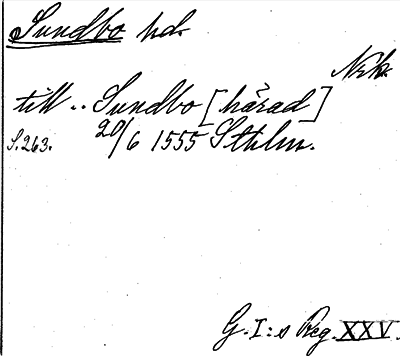 Sundbo hd.
Nrk.
till .. Sundbo [härad]
S. 263. 20/6 1555 Sthlm.
G. I:s Reg. XXV.